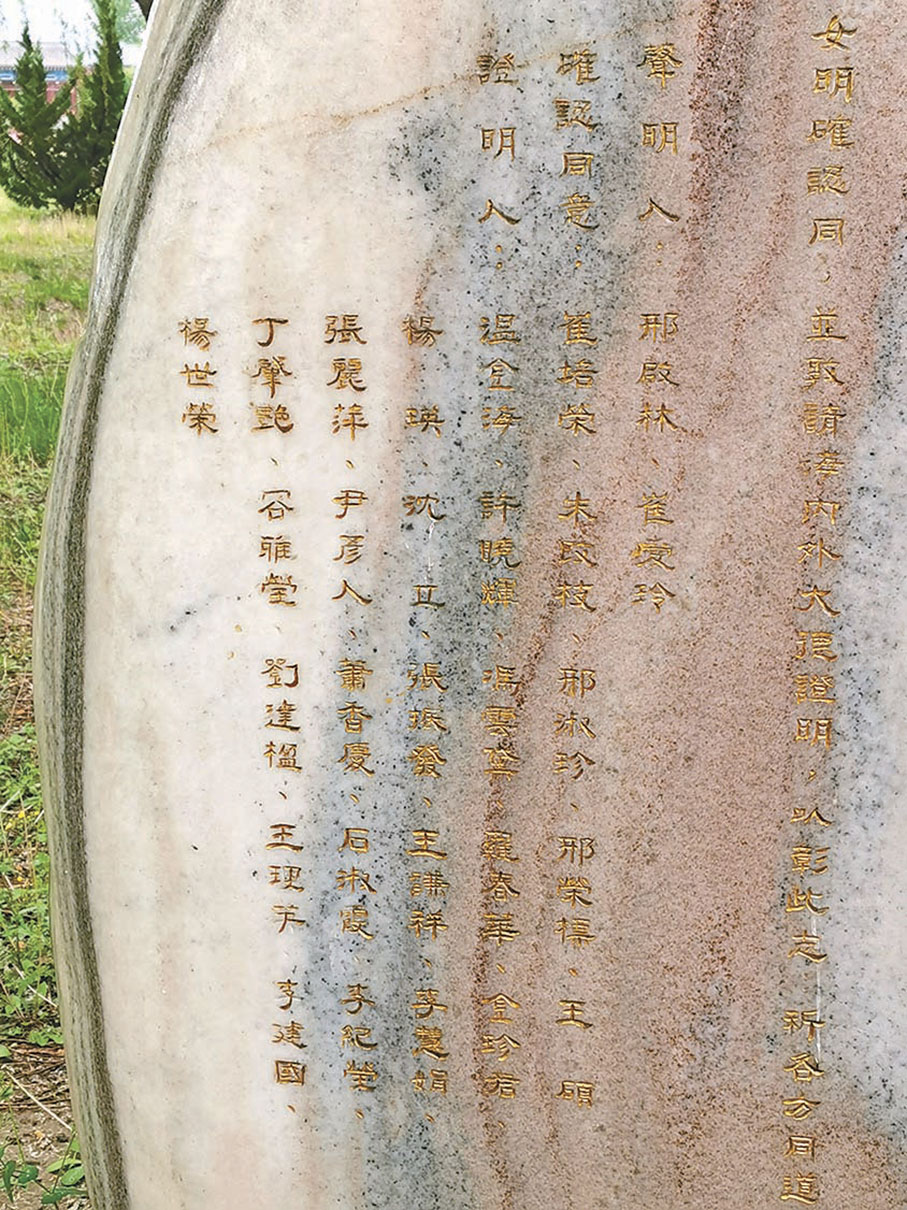 女明確認同，並敦請海內外大德證明，以彰此志，祈各方同道
聲明人：邢啟林、崔愛玲
確認同意：崔培榮、朱政枝、邢淑珍、邢榮標、王碩
證明人：温金海、許曉輝、馮雲黛、羅春華、金珍君、
楊瑛、沈立、張振發、王謙祥、李慧娟、
張麗萍、尹彥人、蕭香慶、石淑霞、李紀瑩、
丁肇艷、容雅瑩、劉達楹、王珽芋、李建國、
楊世榮